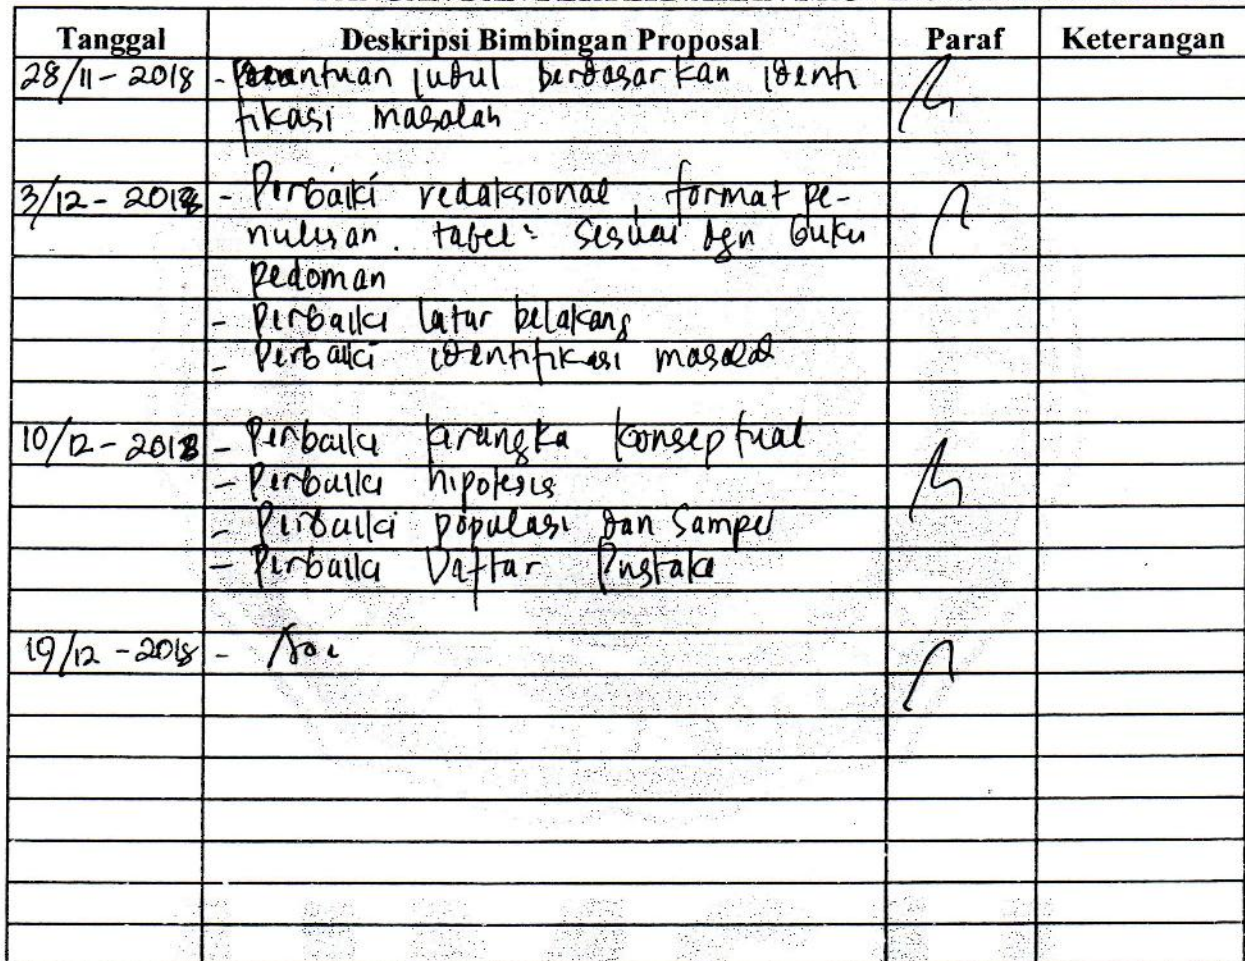 Tanggal Deskripsi Bimbingan Proposal Paraf Keterangan
28/11-2018 - Penantuan judul berdasarkan identi
fikasi masalah
3/12-2018 - Perbaiki redaksional, format pe-
nulisan. tabel: sesuai dgn buku
pedoman
- Perbaiki latar belakang
- Perbaiki identifikasi masalah
10/12-2018 - Perbaiki kerangka konseptual
- Perbaiki hipotesis
- Perbaiki populasi dan sampel
- Perbaiki Daftar Pustaka
19/12-2018 -